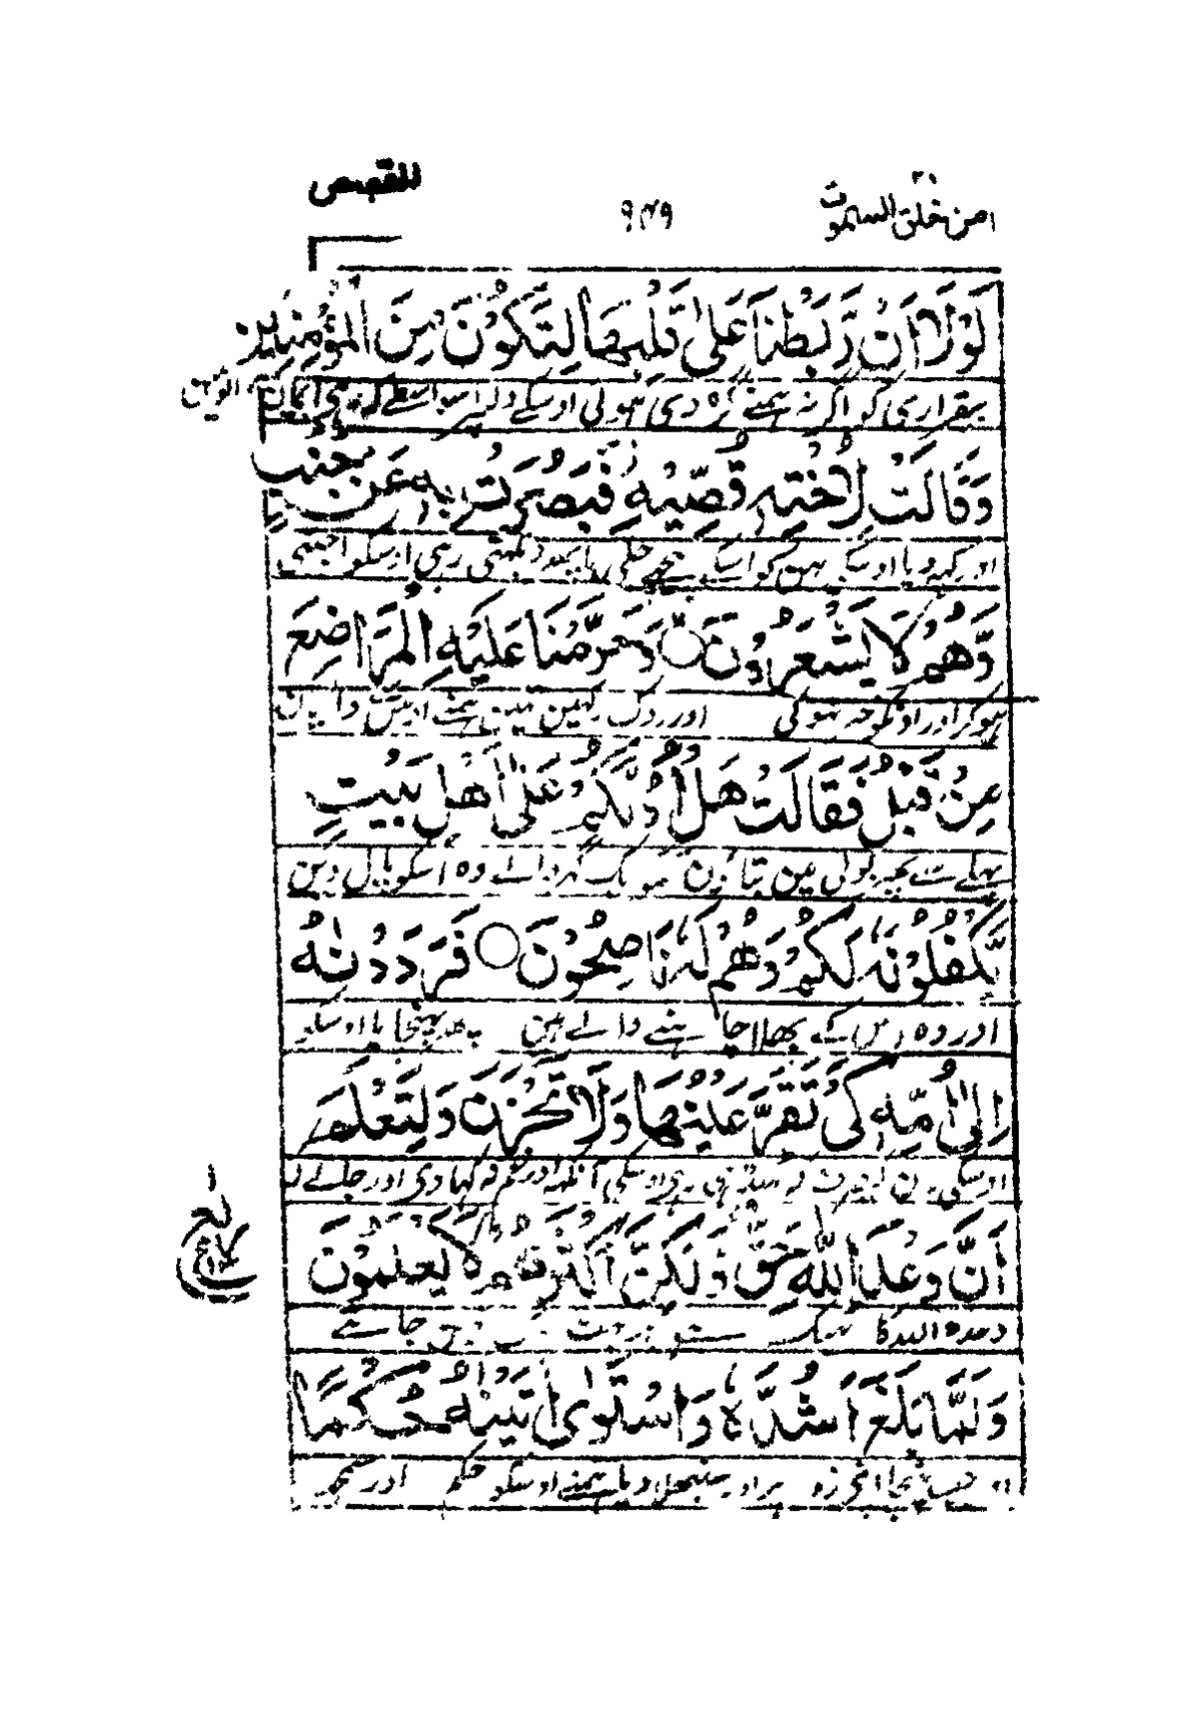 امن خلق السموت ٢٠
٩٤٩
القصص
لَوْلَا أَنْ رَّبَطْنَا عَلٰى قَلْبِهَا لِتَكُوْنَ مِنَ الْمُؤْمِنِيْنَ
بیقراری کو اگر نہ ہمنے گرہ دی ہوتی اوسکے دلپر
وَقَالَتْ لِأُخْتِهٖ قُصِّيْهِ فَبَصُرَتْ بِهٖ عَنْ جُنُبٍ
اور کہدیا اوسکی بہن کو اسکے پیچھے چلی جا پھر دیکھتی رہی اوسکو اجنبی
وَّهُمْ لَا يَشْعُرُوْنَ ○ وَحَرَّمْنَا عَلَيْهِ الْمَرَاضِعَ
ہوکر اور اونکو خبر نہوئی اور روک رکھین تہین ہمنے اوس سے دایان
مِنْ قَبْلُ فَقَالَتْ هَلْ أَدُلُّكُمْ عَلٰى أَهْلِ بَيْتٍ
پہلے سے پھر بولی مین بتاؤن تمکو ایک گھر والے وہ اسکو پال دین
يَّكْفُلُوْنَهٗ لَكُمْ وَهُمْ لَهٗ نَاصِحُوْنَ ○ فَرَدَدْنٰهُ
اور وہ اس کے بھلا چاہنے والے ہین پھر پہنچایا اوسکو
إِلٰى أُمِّهٖ كَيْ تَقَرَّ عَيْنُهَا وَلَا تَحْزَنَ وَلِتَعْلَمَ
اوسکی مان کی طرف کہ ٹھنڈی رہی اوسکی آنکھ اور غم نہ کھاوی اور جانے کہ
أَنَّ وَعْدَ اللّٰهِ حَقٌّ وَّلٰكِنَّ أَكْثَرَهُمْ لَا يَعْلَمُوْنَ
وعدہ اللہ کا ٹھیک
وَلَمَّا بَلَغَ أَشُدَّهٗ وَاسْتَوٰى اٰتَيْنٰهُ حُكْمًا
جب پہنچا اپنی زور پر اور سنبھلا دیا ہمنے اوسکو حکم اور سمجھ